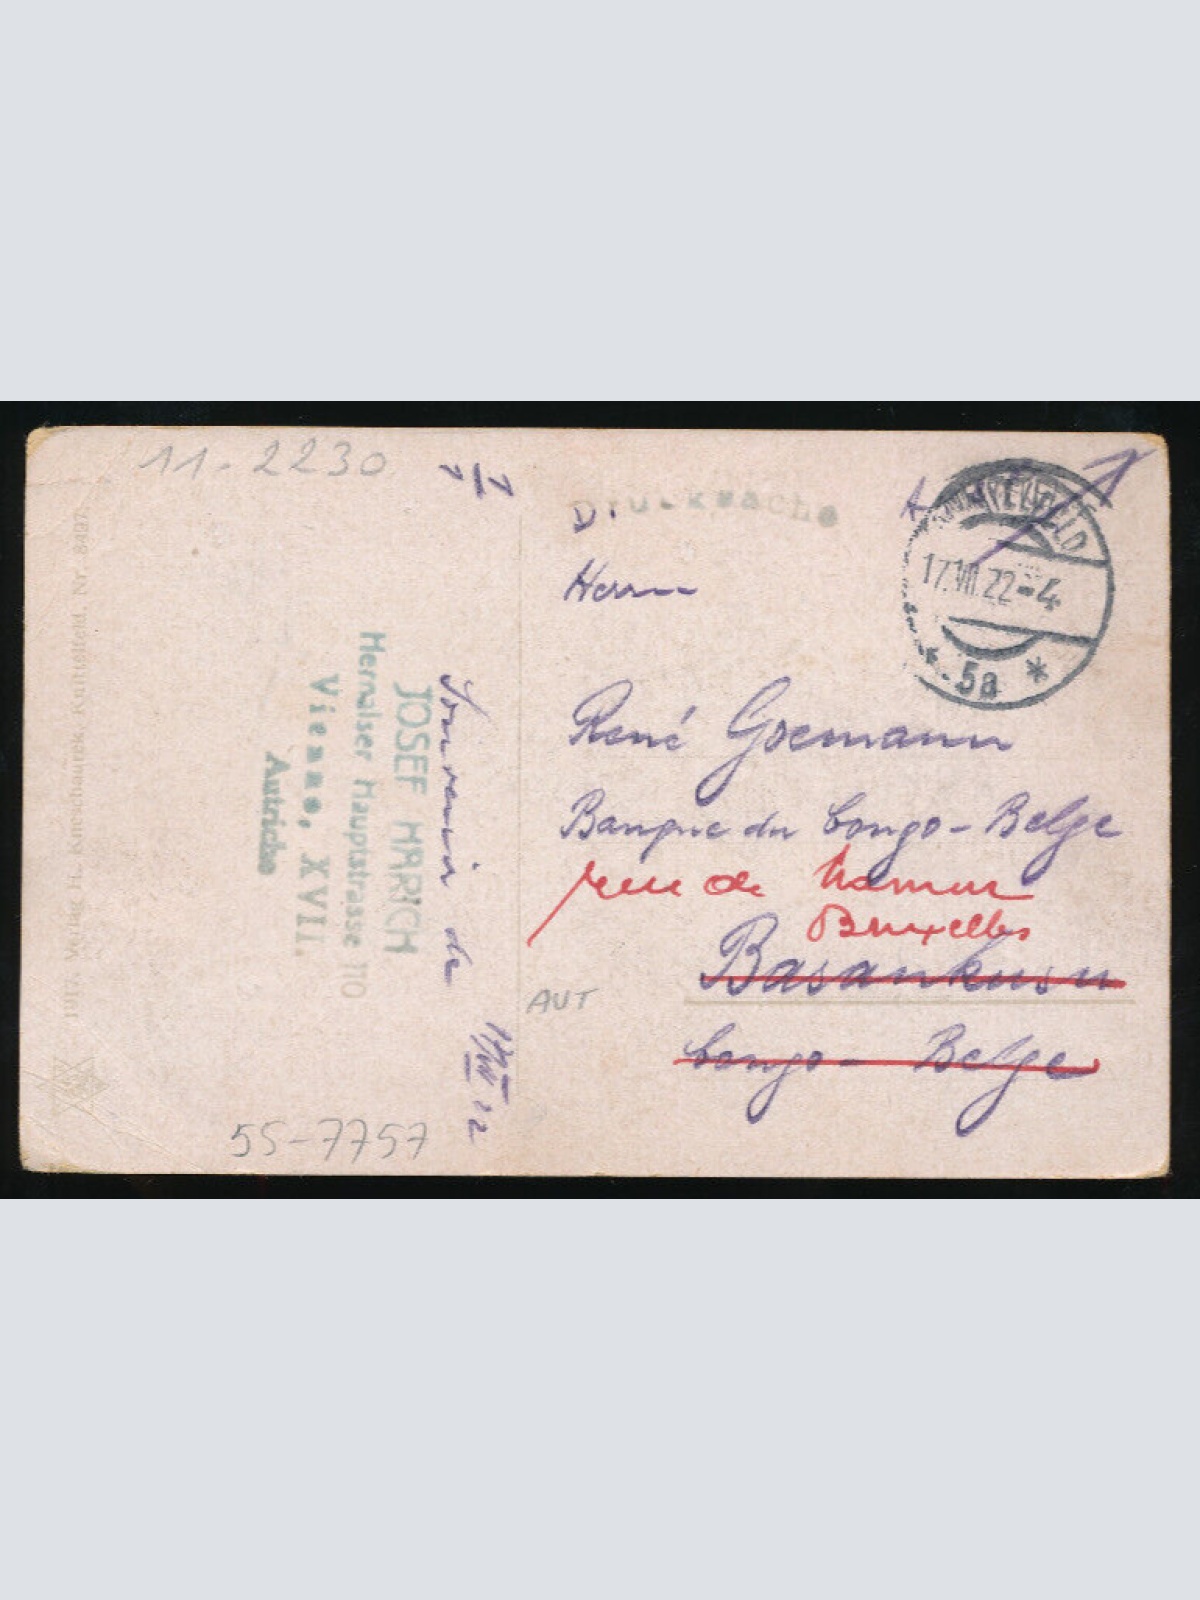 11-2230
Drucksache
Herrn
KNITTELFELD
17.VIII.22-4
* 5a *
René Goemann
Banque du Congo-Belge
rue de Namur
Bruxelles
Basankusu
Congo-Belge
AUT
Souvenir de
17/VIII 22
JOSEF HARICH
Hernalser Hauptstrasse 110
Vienne, XVII.
Autriche
Verlag H. Knieschaurek, Knittelfeld. Nr. 8497
55-7757